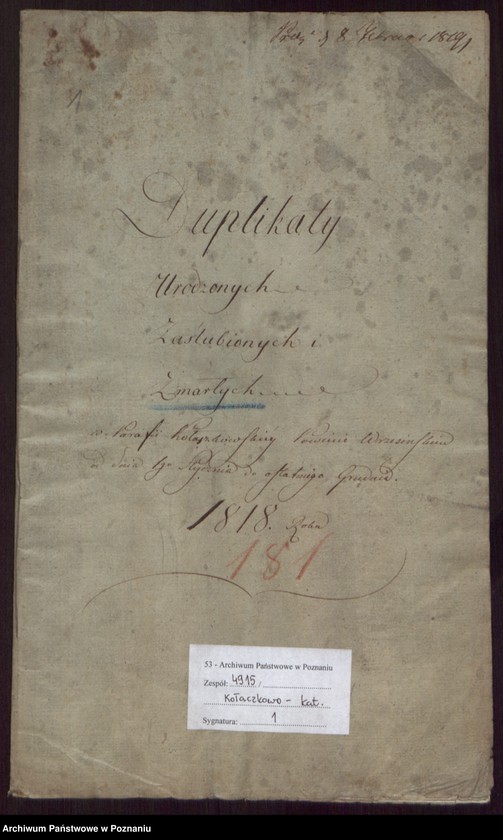 8 Februar 1819
1
Duplikaty
Urodzonych
Zaslubionych i
Zmarłych
w Parafii Kołaczkowskiey Powiecie Wrzesinskim
od dnia 1go Stycznia do ostatniego Grudnia.
1818. Roku
181
53 - Archiwum Państwowe w Poznaniu
Zespół: 4915 /
Kołaczkowo - kat.
Sygnatura: 1
Archiwum Państwowe w Poznaniu
Archiwum Państwowe w Poznaniu